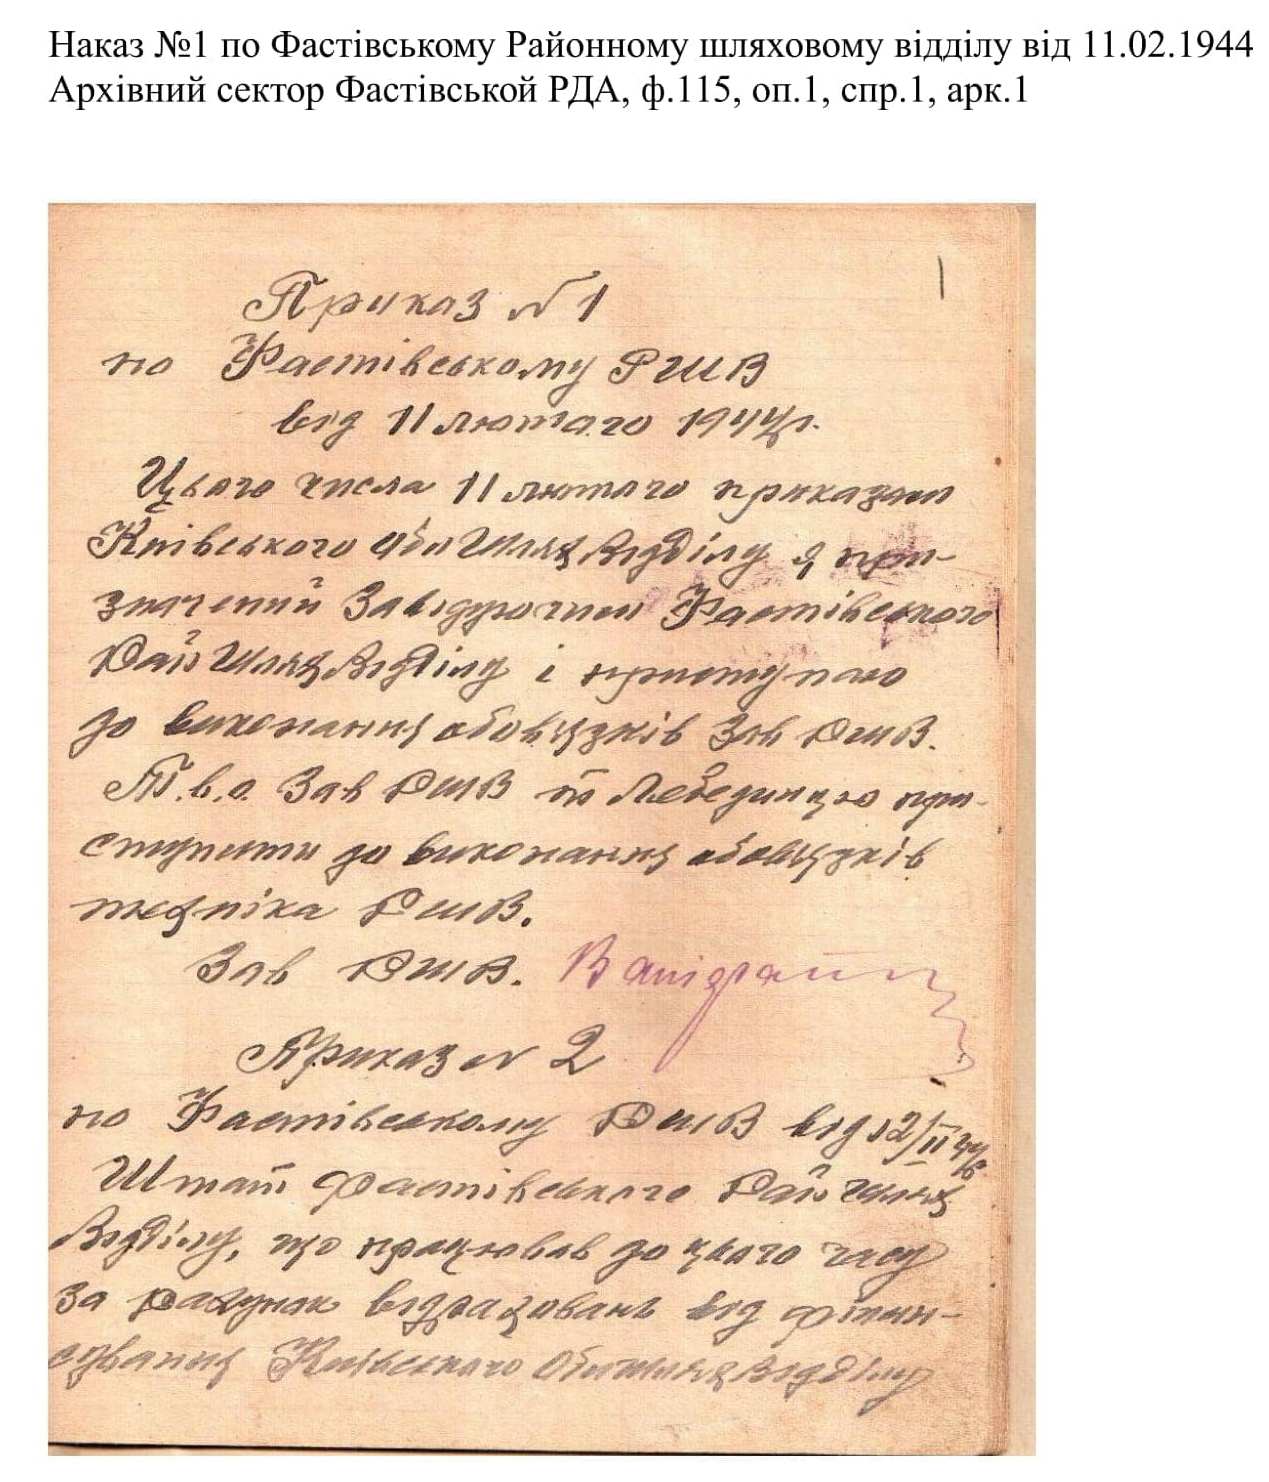 Наказ №1 по Фастівському Районному шляховому відділу від 11.02.1944
Архівний сектор Фастівської РДА, ф.115, оп.1, спр.1, арк.1
1
Приказ № 1
по Фастівському РШВ
від 11 лютого 1944 р.
Цього числа 11 лютого приказом
Київського ОблШляхВідділу я при-
значений Завідуючим Фастівського
РайШляхВідділу і приступаю
до виконання обовязків Зав РШВ.
Т.в.о. Зав РШВ Лебединцю при-
ступити до виконання обовязків
техніка РШВ.
Зав РШВ.
Приказ № 2
по Фастівському РШВ від 12/II 44
Штат Фастівського РайШлях
Відділу, що працював до цього часу
за рахунок від фінан-
сування Київського ОблШляхВідділу